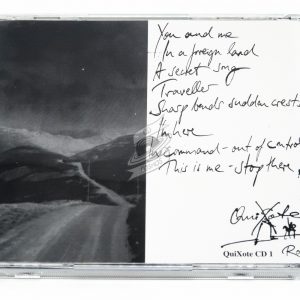 You and me
In a foreign land
A secret song
Traveller
Sharp bends sudden crests
I'm here
In command - out of control
This is me - stop there
QuiXote
QuiXote CD 1